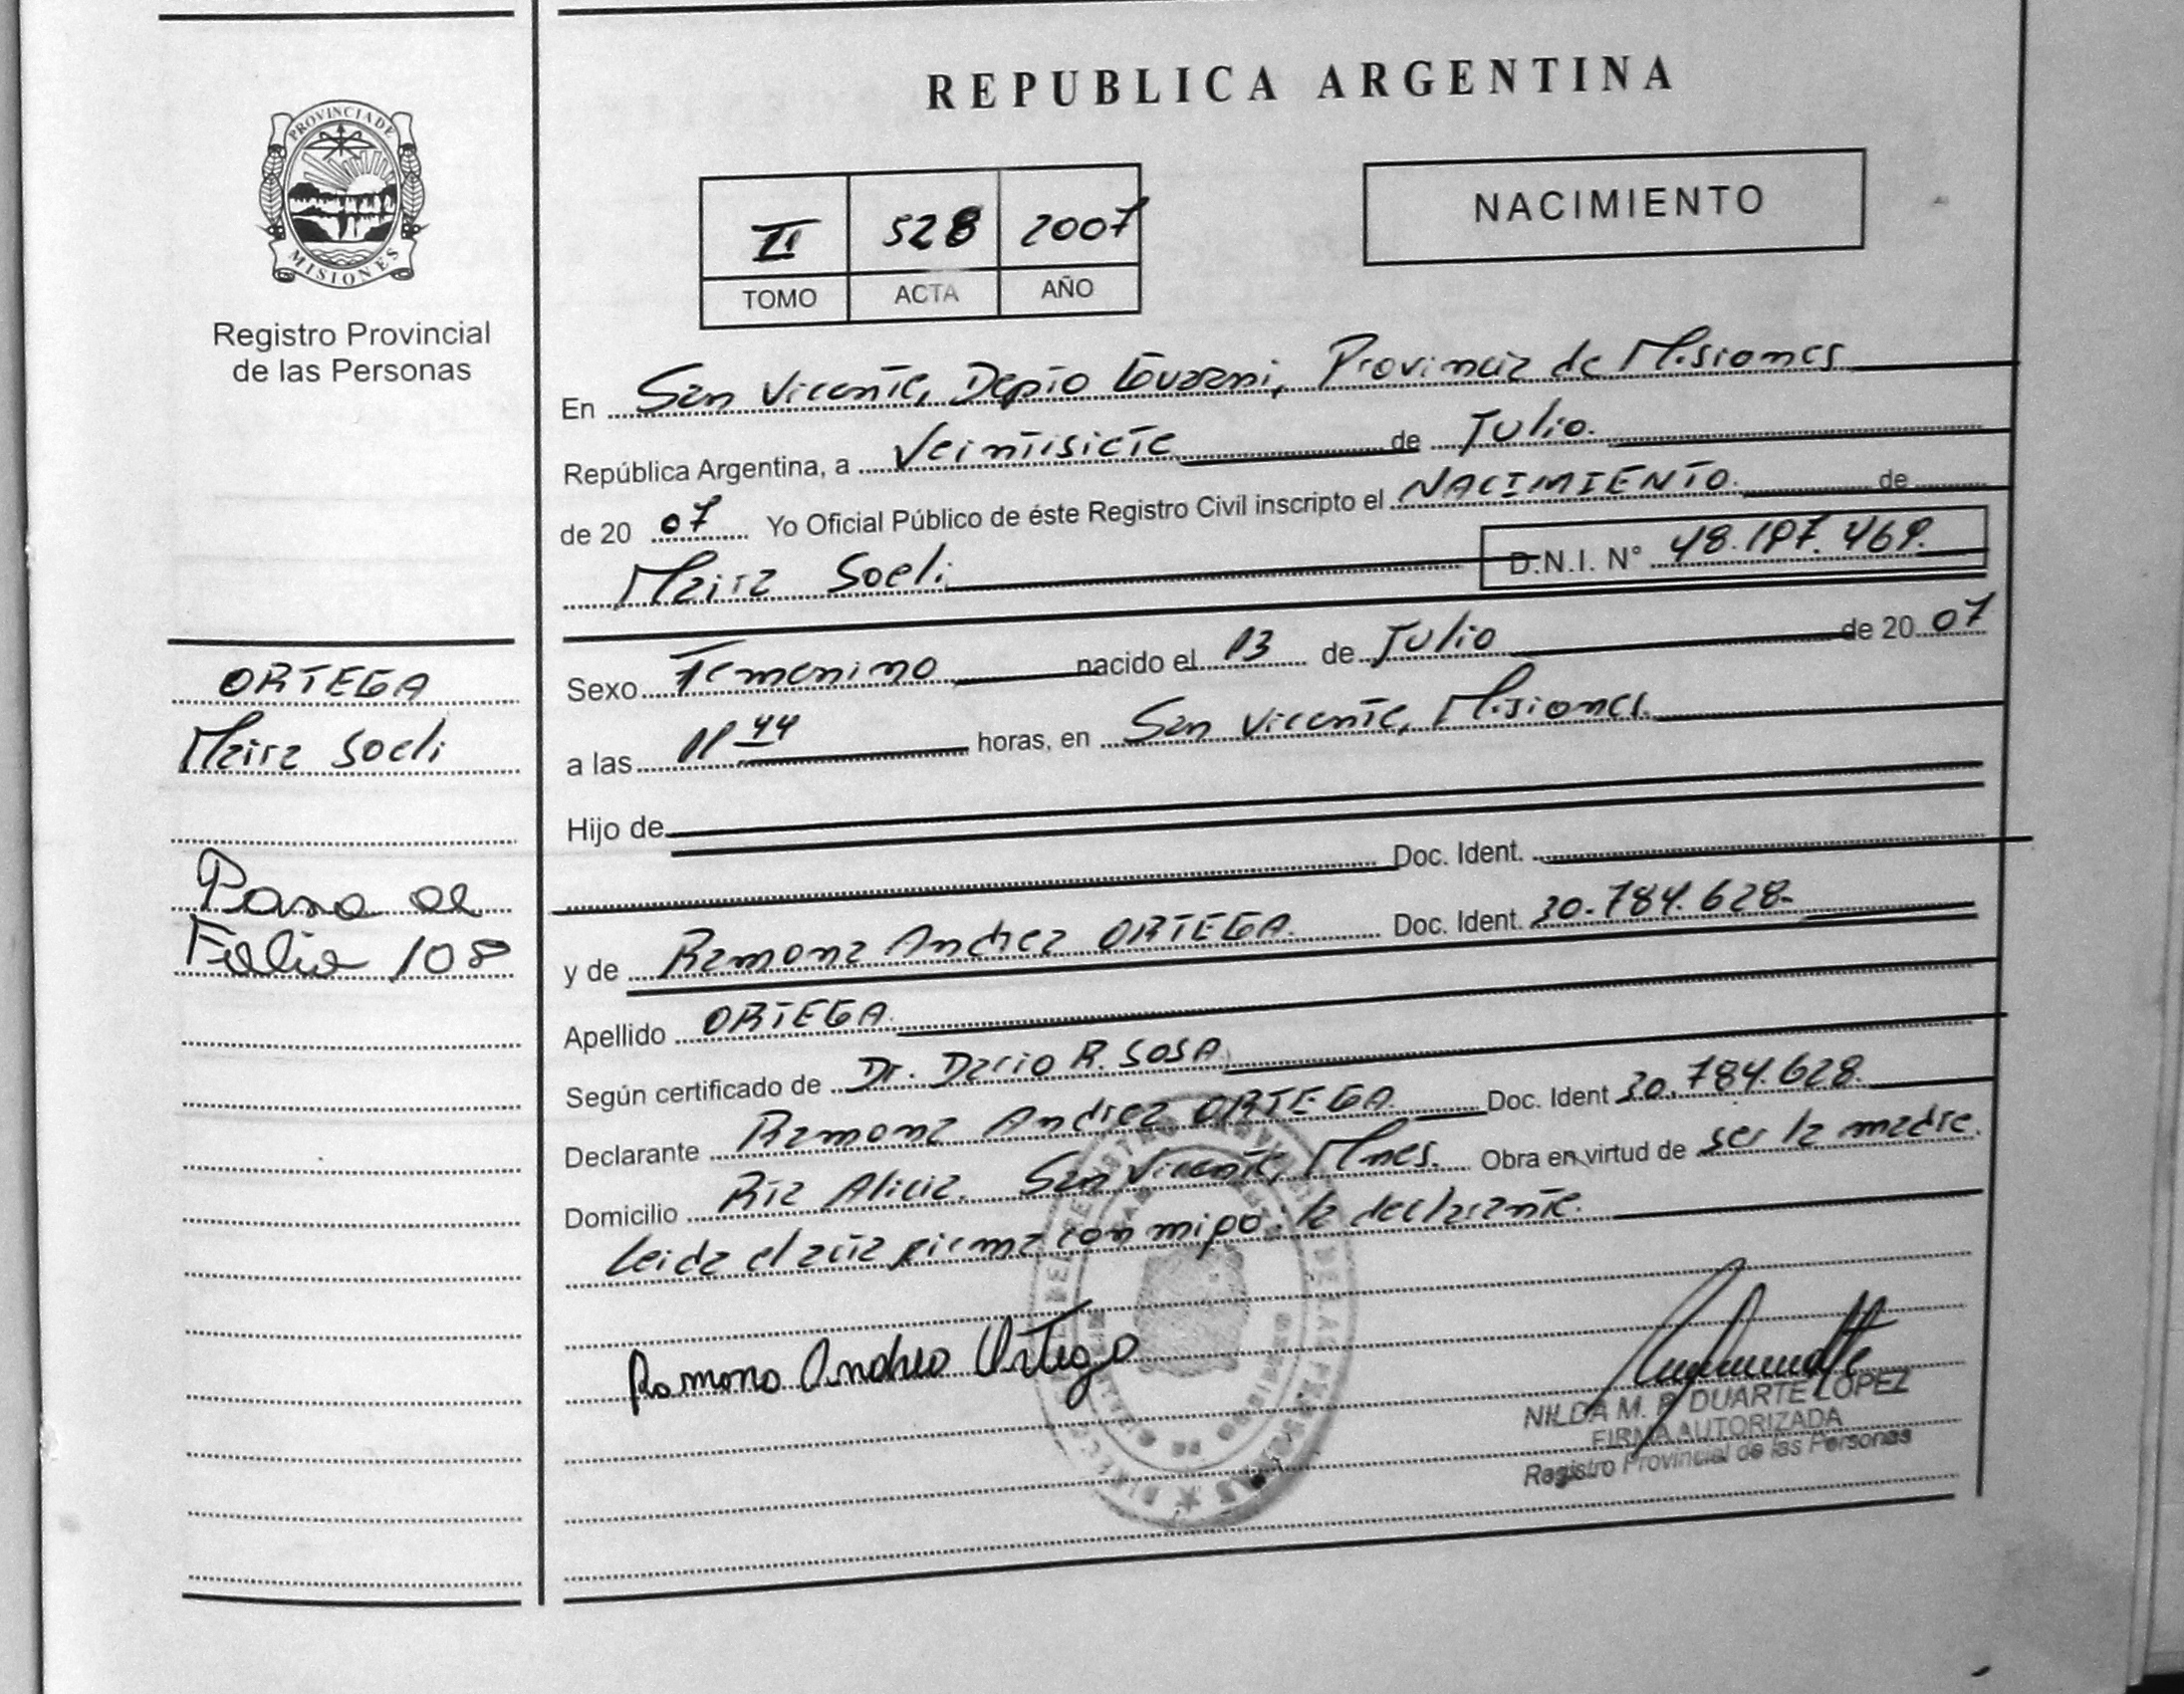 REPUBLICA ARGENTINA
PROVINCIA DE
MISIONES
Registro Provincial
de las Personas
II 528 2007
TOMO ACTA AÑO
NACIMIENTO
En San Vicente, Depto Guarani, Provincia de Misiones
República Argentina, a Veintisiete de Julio.
de 20 07 Yo Oficial Público de éste Registro Civil inscripto el NACIMIENTO. de
Maira Soeli D.N.I. N° 48.197.469.
Sexo Femenino nacido el 13 de Julio de 20 07
a las 11 44 horas, en San Vicente, Misiones.
Hijo de
Doc. Ident.
y de Ramona Andrea ORTEGA. Doc. Ident. 30.784.628.
Apellido ORTEGA.
Según certificado de Dr. Dario R. SOSA.
Declarante Ramona Andrea ORTEGA Doc. Ident 30.784.628.
Domicilio Alicia. San Vicente, Mnes. Obra en virtud de ser la madre.
Leida el acta firma con migo: la declarante.
Ramona Andrea Ortega
NILDA M. DUARTE LOPEZ
FIRMA AUTORIZADA
Registro Provincial de las Personas
ORTEGA
Maira Soeli
Pasa al
Folio 108